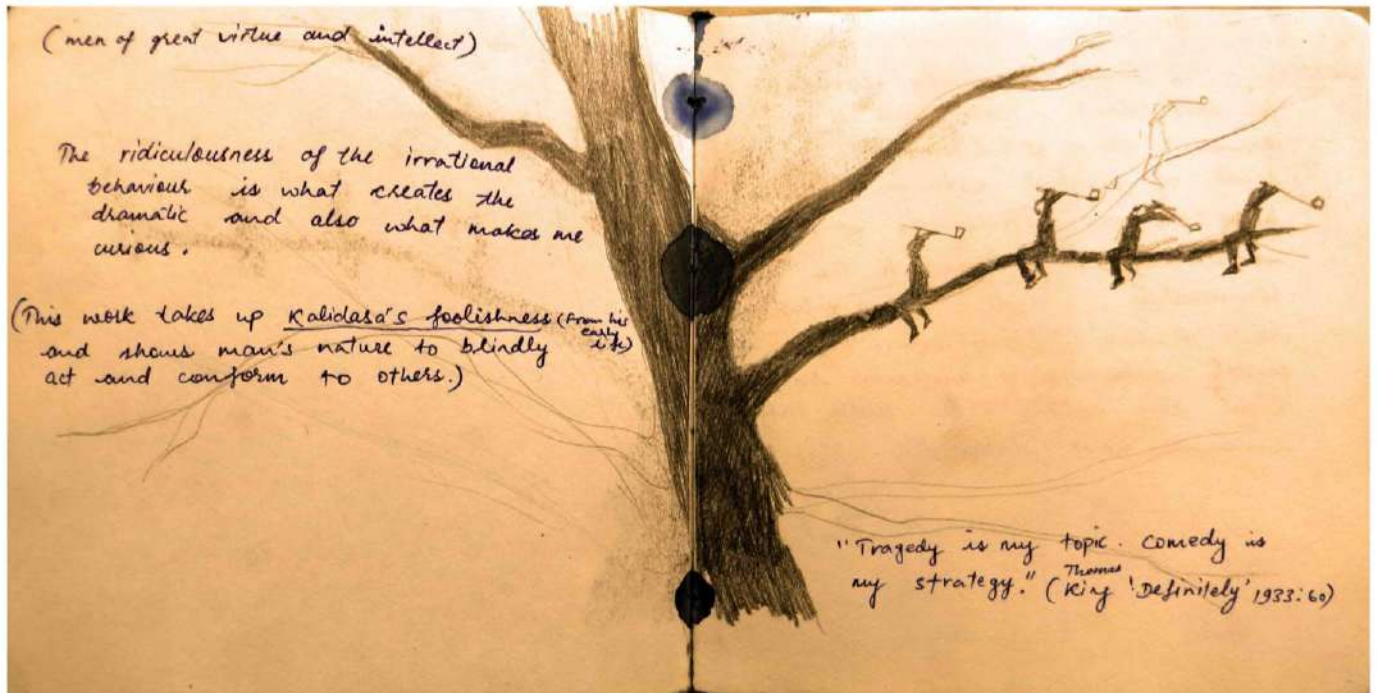 (men of great virtue and intellect)
The ridiculousness of the irrational
behaviour is what creates the
dramatic and also what makes me
curious.
(This work takes up Kalidasa's foolishness (from his early life)
and shows man's nature to blindly
act and conform to others.)
"Tragedy is my topic. Comedy is
my strategy." (Thomas King 'Definitely' 1933:60)